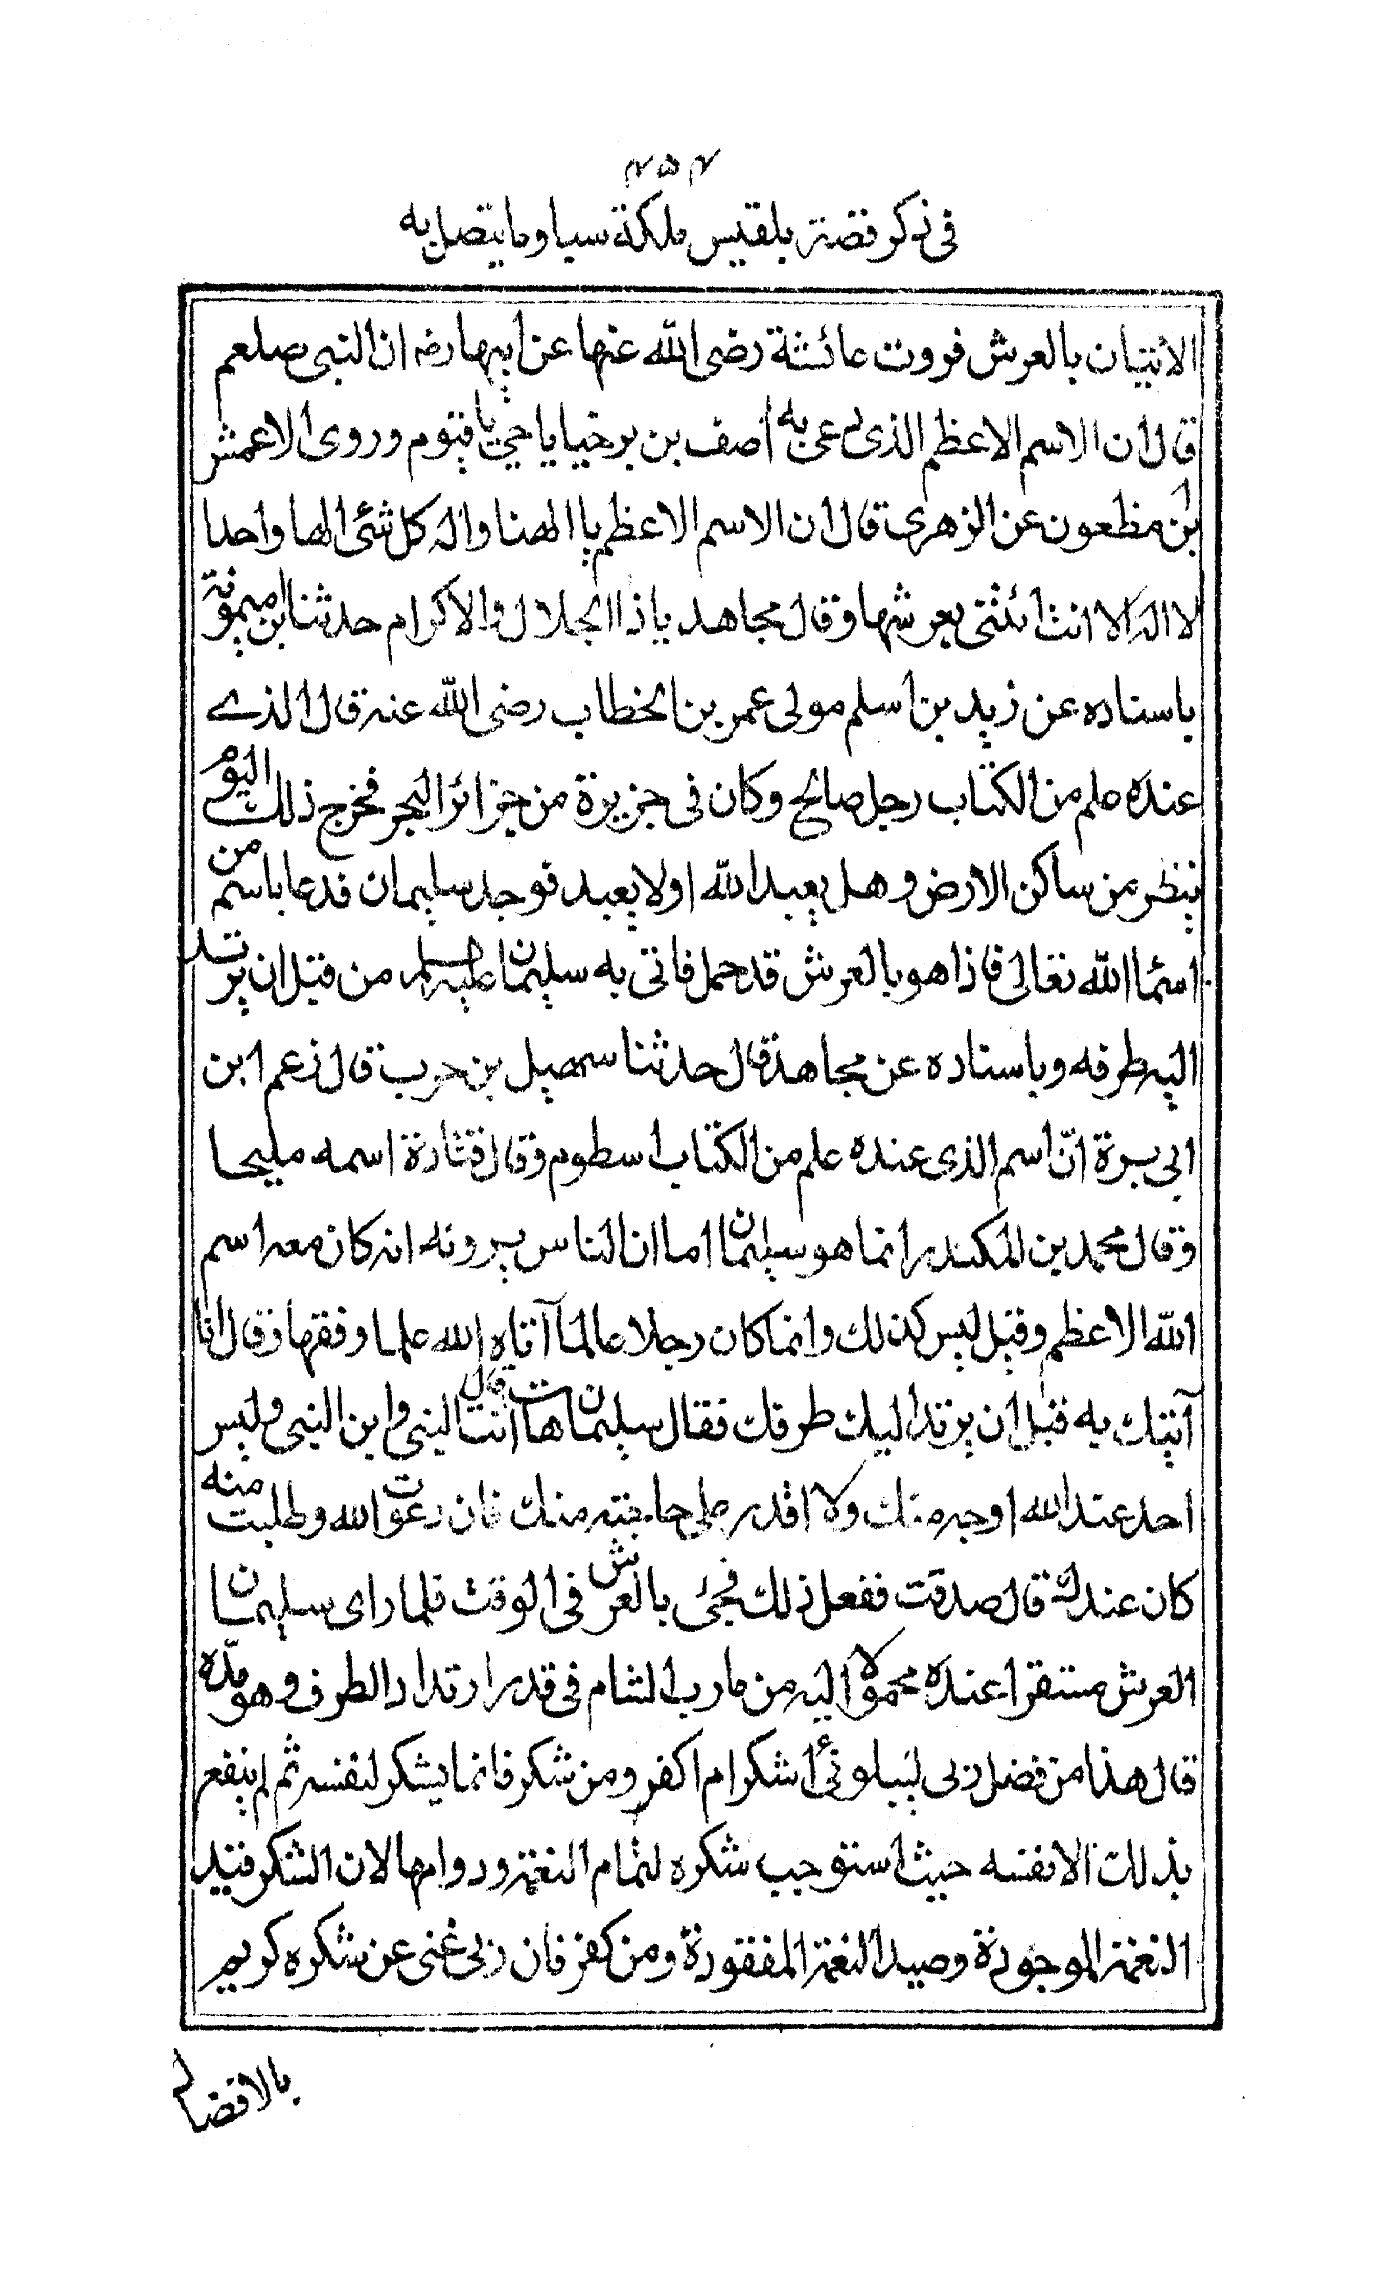 ٤٥٤
في ذكر قصة بلقيس ملكة سبا وما يتصل به
الاتيان بالعرش فروت عائشة رضى الله عنها عن ابيها رضه ان النبى صلعم
قال ان الاسم الاعظم الذى دعى به اصف بن برخيا يا حي يا قيوم وروى الاعمش
بن مظعون عن الزهرى قال ان الاسم الاعظم يا الهنا واله كل شئ الها واحدا
لا اله الا انت ائتنى بعرشها وقال مجاهد يا ذا الجلال والاكرام حدثنا ابن ميمونة
باسناده عن زيد بن اسلم مولى عمر بن الخطاب رضى الله عنه قال الذے
عنده علم من الكتاب رجل صالح وكان فى جزيرة من جزائر البحر فخرج ذلك اليوم
ينظر من ساكن الارض وهل يعبد الله اولا يعبد فوجد سليمان فدعا باسم من
اسما الله تعالى فاذا هو بالعرش قد حمل فاتى به سليمان عليه السلم من قبل ان يرتد
اليه طرفه وباسناده عن مجاهد قال حدثنا سمهيل بن حرب قال زعم ابن
ابى بسرة انّ اسم الذى عنده علم من الكتاب اسطوم وقال قتادة اسمه مليحا
وقال محمد بن المكندر انما هو سليمان اما ان الناس يرونه انه كان معه اسم
الله الاعظم وقيل ليس كذلك وانما كان رجلا عالما آتاه الله علما وفقها وقال انا
آتيك به قبل ان يرتد اليك طرفك فقال سليمان هات قال انت النبى وابن النبى وليس
احد عند الله اوجه منك ولا اقدر على حاجته منك فان دعوت الله وطلبت منه
كان عندك قال صدقت ففعل ذلك فجئ بالعرش فى الوقت فلما راى سليمان
العرش مستقرا عنده محمولا اليه من مارب الشام فى قدر ارتداد الطرف وهو مدّه
قال هذا من فضل ربى ليبلونى أاشكر ام اكفر ومن شكر فانما يشكر لنفسه ثم لم ينفع
بذلك الا نفسه حيث استوجب شكره لتمام النعمة ودوامها لان الشكر قيد
النعمة الموجودة وصيد النعمة المفقودة ومن كفر فان ربى غنى عن شكره كريم
بالافضال